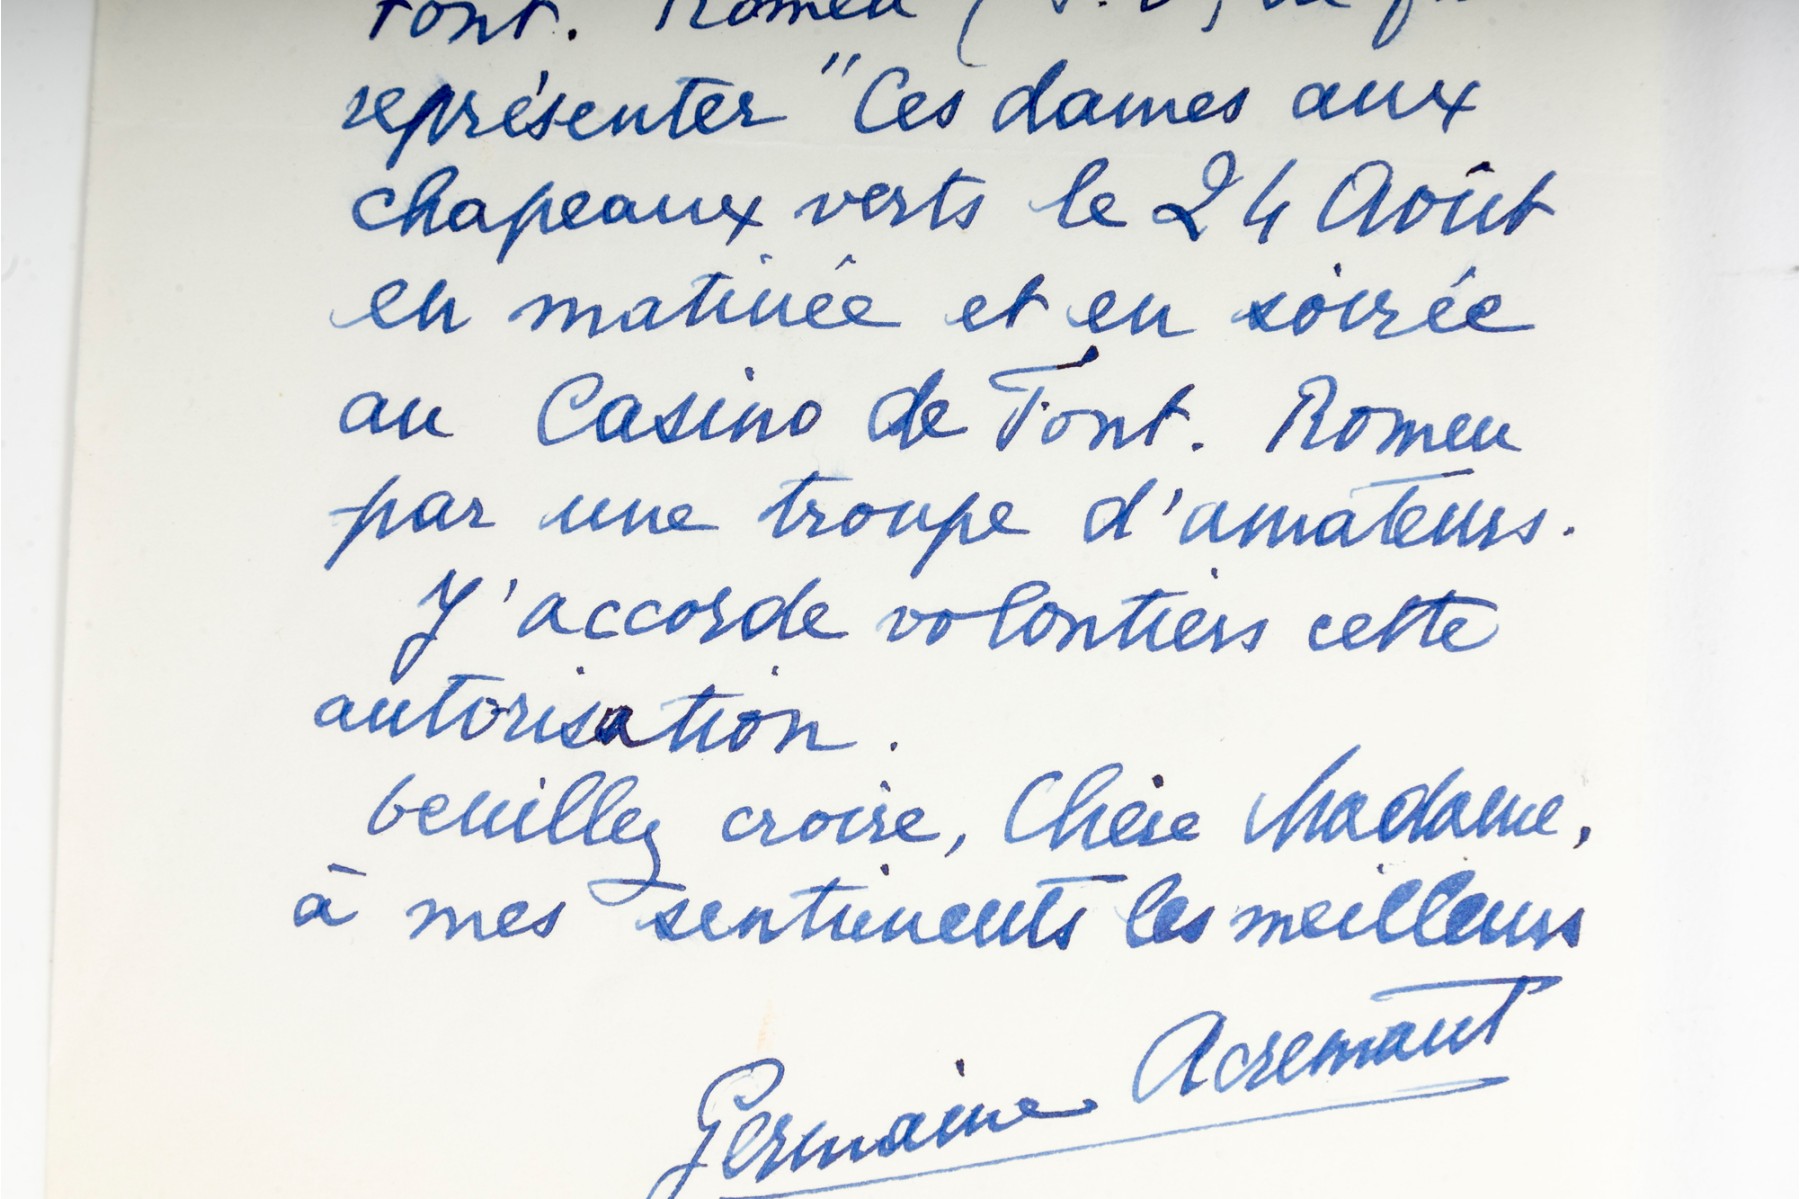 Font. Romeu (P.O) de
représenter "Ces dames aux
chapeaux verts le 24 Août
en matinée et en soirée
au Casino de Font. Romeu
par une troupe d'amateurs.
J'accorde volontiers cette
autorisation.
Veuillez croire, Chère Madame,
à mes sentiments les meilleurs
Germaine Acremant